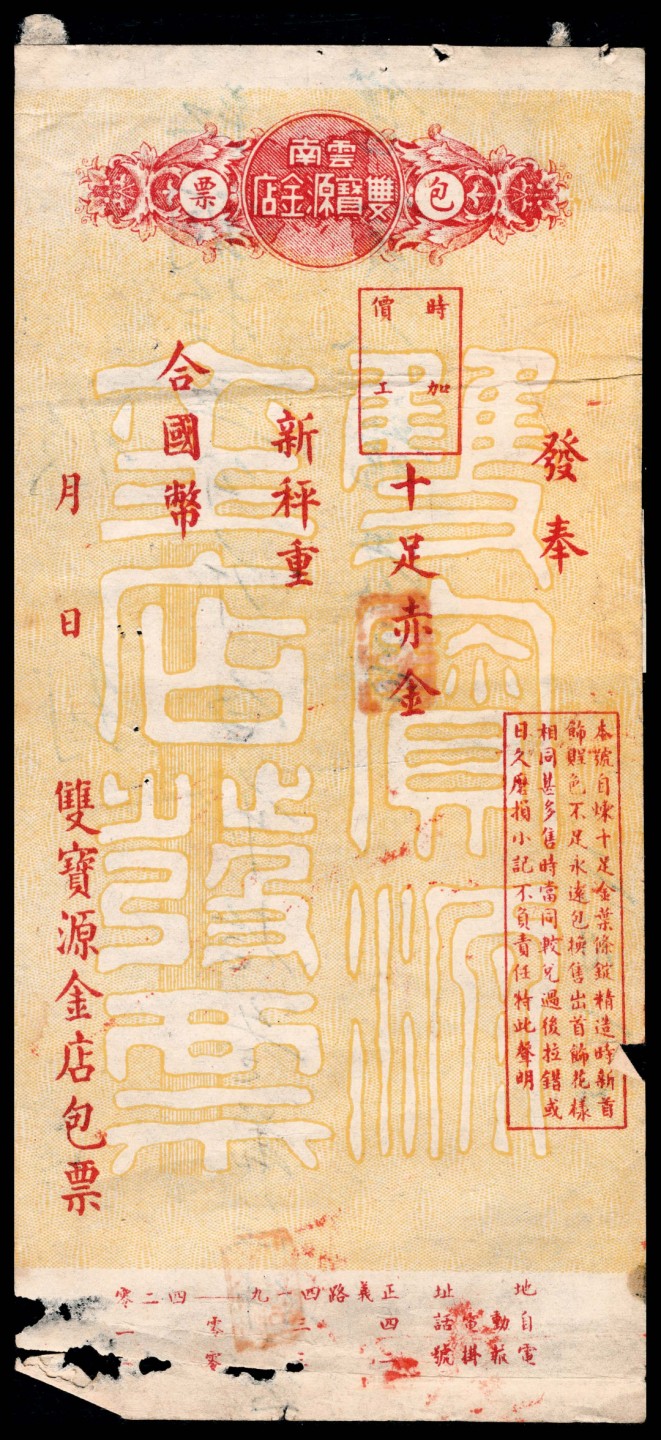 雲南
雙寶源金店
包票
發奉
時價
加工
十足赤金
新秤重
合國幣
月 日
雙寶源金店包票
本號自煉十足金葉條錠精造時新首
飾 色不足永遠包換售出首飾花樣
相同甚多售時當同較兌過後拉錯或
日久磨損小記不負責任特此聲明
雙寶源
金店發票
地址 正義路四一九——四二零
自動電話 四三零一
電報掛號 零